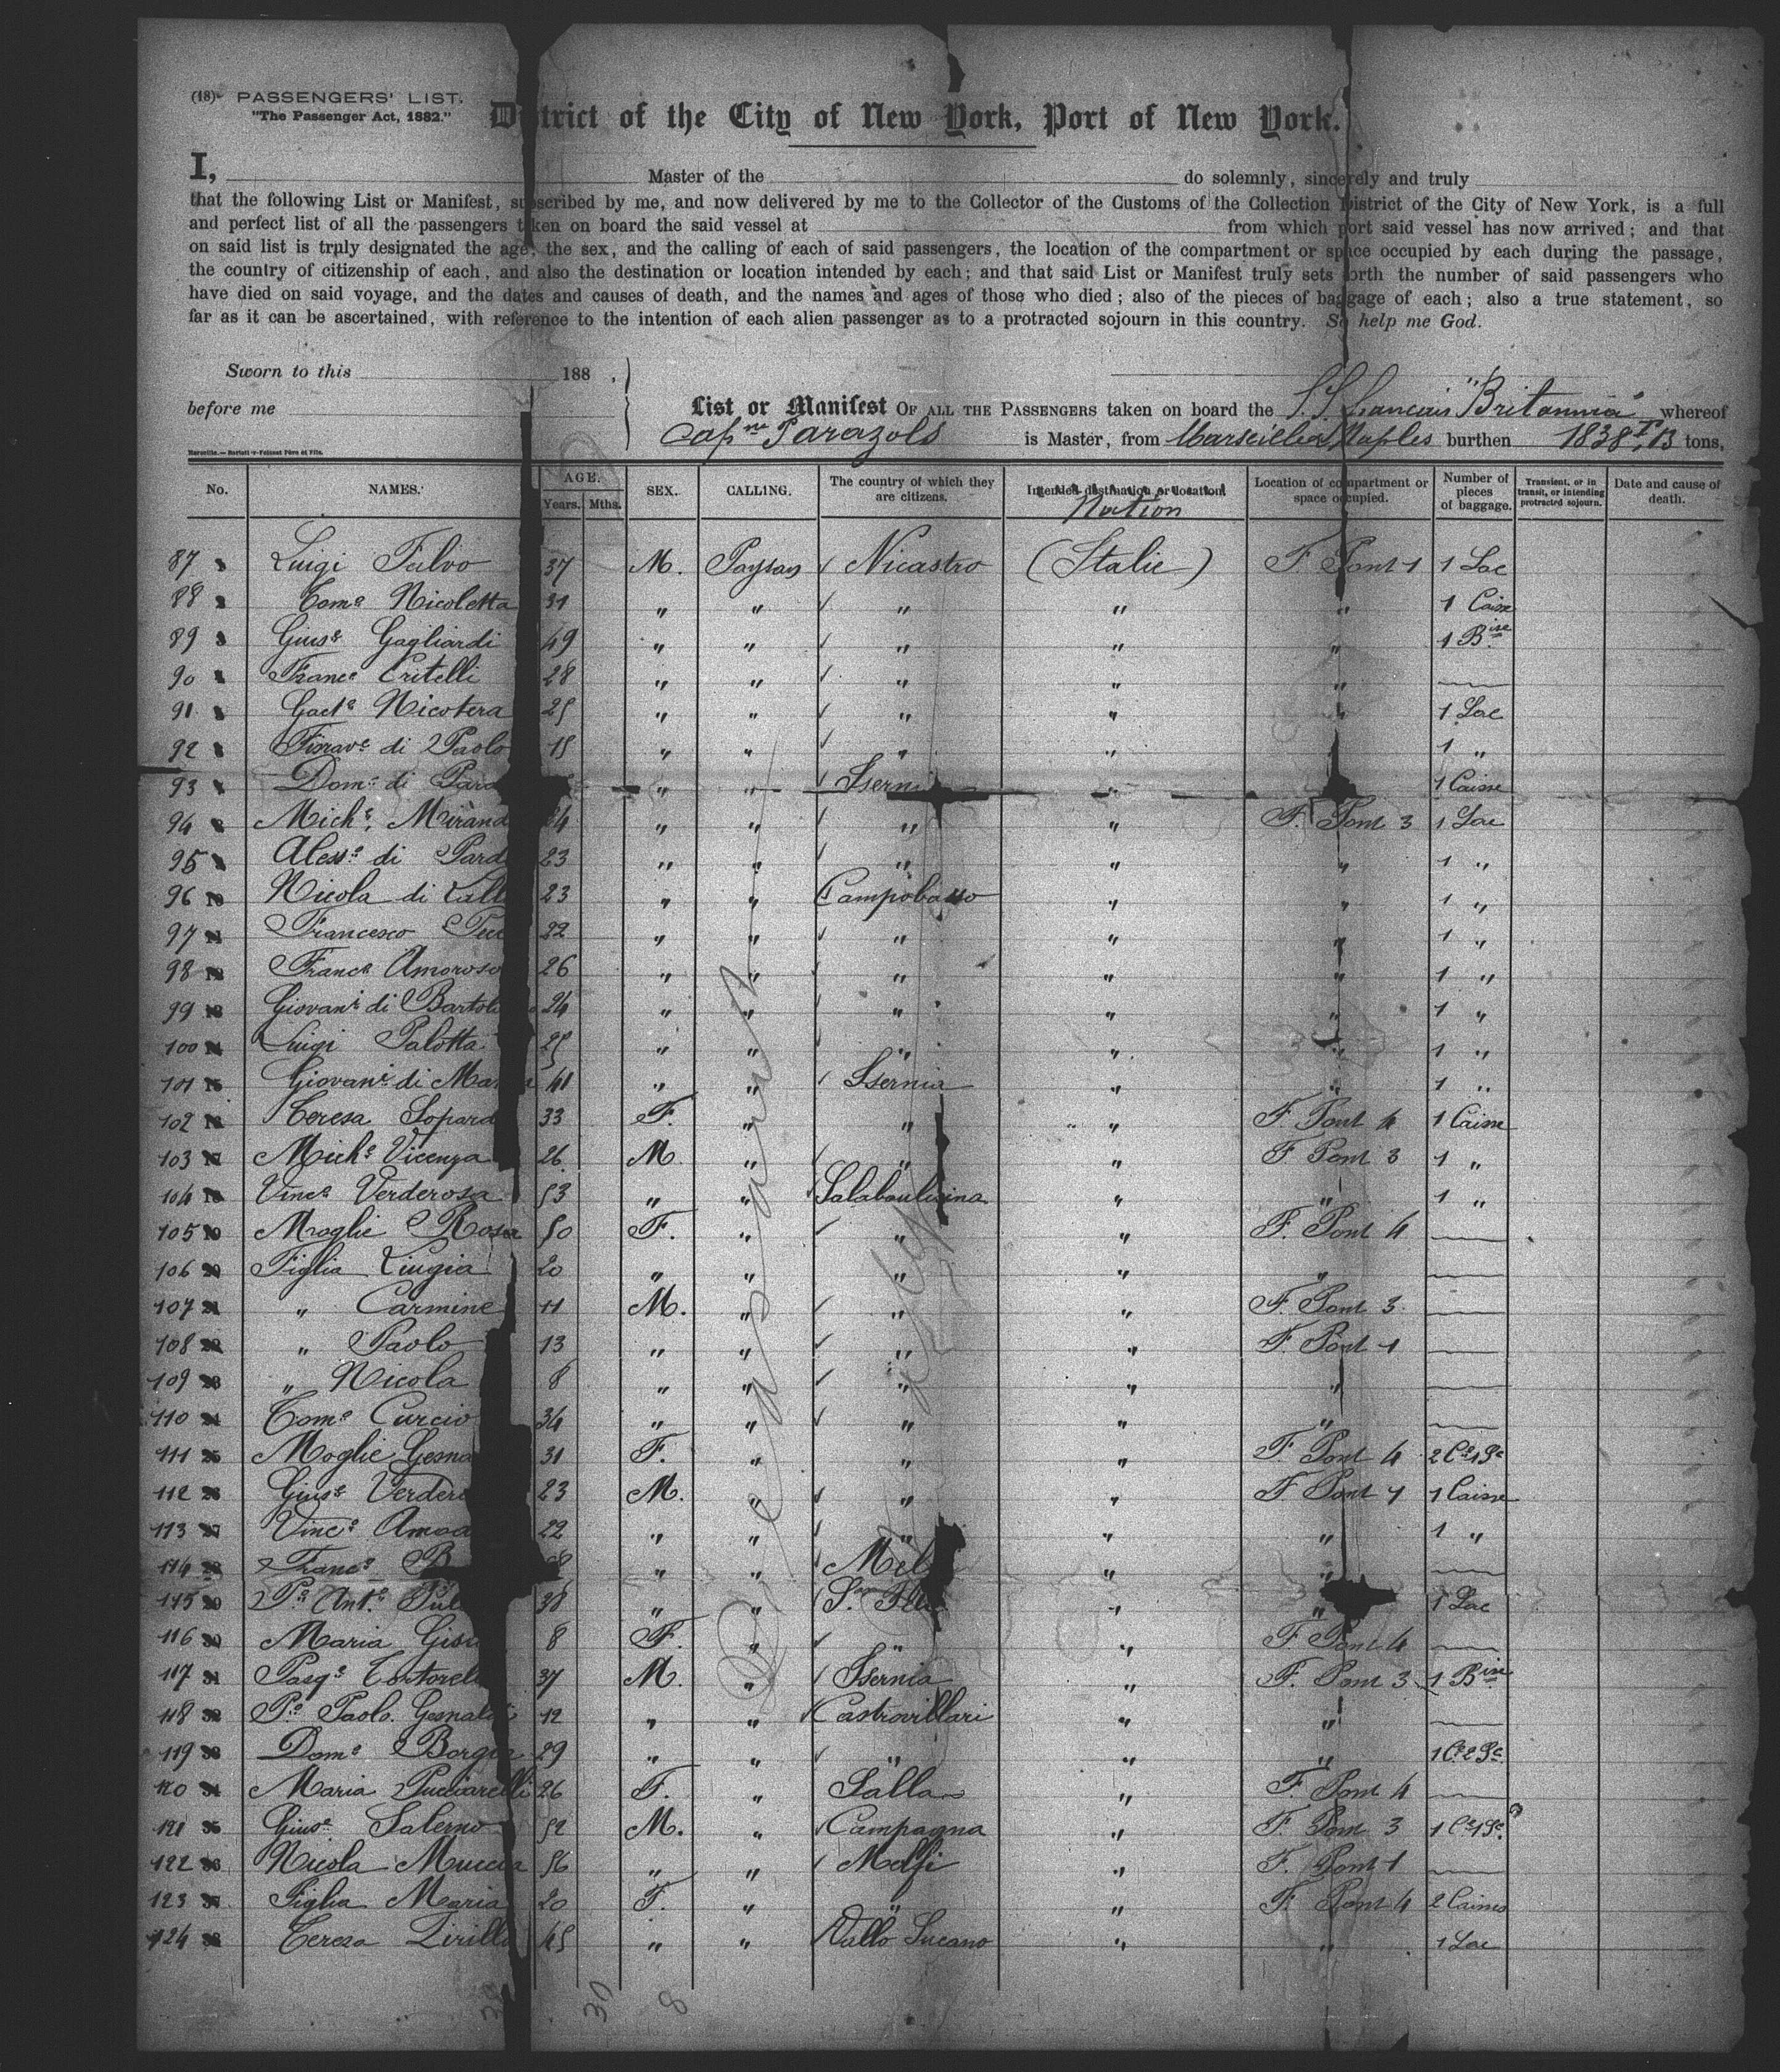 (18) PASSENGERS' LIST.
"The Passenger Act, 1882."
District of the City of New York, Port of New York.
I, Master of the do solemnly, sincerely and truly
that the following List or Manifest, subscribed by me, and now delivered by me to the Collector of the Customs of the Collection District of the City of New York, is a full
and perfect list of all the passengers taken on board the said vessel at from which port said vessel has now arrived; and that
on said list is trnly designated the age, the sex, and the calling of each of said passengers, the location of the compartment or space occupied by each during the passage,
the country of citizenship of each, and also the destination or location intended by each; and that said List or Manifest truly sets forth the number of said passengers who
have died on said voyage, and the dates and causes of death, and the names and ages of those who died; also of the pieces of baggage of each; also a true statement, so
far as it can be ascertained, with reference to the intention of each alien passenger as to a protracted sojourn in this country. So help me God.
Sworn to this 188 ,
before me
List or Manifest OF ALL THE PASSENGERS taken on board the S.S. francais "Britannia" whereof
Capne Parazols is Master, from Marseille & Naples burthen 1838 T 13 tons,
No. NAMES. AGE. Years. Mths. SEX. CALLING. The country of which they are citizens. Intended destination or location. Nation Location of compartment or space occupied. Number of pieces of baggage. Transient, or in transit, or intending protracted sojourn. Date and cause of death.
87 Luigi Falvo 37 M. Paysan Nicastro (Italie) F. Pont 1 1 Sac
88 Tomo Nicoletta 31 " " " " " 1 Caisse
89 Giuse Gagliardi 49 " " " " " 1 Bise
90 Franco Critelli 28 " " " " "
91 Gaeto Nicotera 25 " " " " " 1 Sac
92 di Paolo 15 " " " " " 1 "
93 Domo di " " Iserni " 1 Caisse
94 Miche Mirand 24 " " " " F. Pont 3 1 Sac
95 Alesso di Pard 23 " " " " " 1 "
96 Nicola di 23 " " Campobasso " " 1 "
97 Francesco 22 " " " " " 1 "
98 Franco Amoroso 26 " " " " " 1 "
99 Giovani di Bartol 24 " " " " " 1 "
100 Luigi Palotta 25 " " " " " 1 "
101 Giovani di Mar 41 " " Isernia " " 1 "
102 Teresa Lopard 33 F. " " " F. Pont 4 1 Caisse
103 Miche Vicenza 26 M. " " " F. Pont 3 1 "
104 Vinco Verderosa 53 " " " " 1 "
105 Moglie Rosa 50 F. " " " F. Pont 4
106 Figlia Luigia 20 " " " " "
107 " Carmine 11 M. " " " F. Pont 3
108 " Paolo 13 " " " " F. Pont 1
109 " Nicola 8 " " " " "
110 Tomo Curcio 34 " " " " "
111 Moglie Gesna 31 F. " " " F. Pont 4 2 Ce 1 Sc
112 Giuse Verder 23 M. " " " F Pont 1 1 Caisse
113 Vinco 22 " " " " " 1 "
114 Franco B 8 " " Mel " "
115 Po Anto 38 " " " " 1 Sac
116 Maria 8 F. " " " F Pont 4
117 Pasqe Tortorell 37 M. " Isernia " F. Pont 3 1 Bise
118 Po Paolo Gesnaldi 12 " " Castrovillari " "
119 Domo Borgia 29 " " " " " 1 Ce 2 Sc
120 Maria Pucciarelli 26 F. " Salla " F. Pont 4
121 Giuse Salerno 52 M. " Campagna " F. Pont 3 1 Ce 1 Sc
122 Nicola Muccia 56 " " Melfi " F. Pont 1
123 Figlia Maria 20 F. " " " F. Pont 4 2 Caisses
124 Teresa Lirillo 45 " " Vallo Lucano " " 1 Sac
30 8